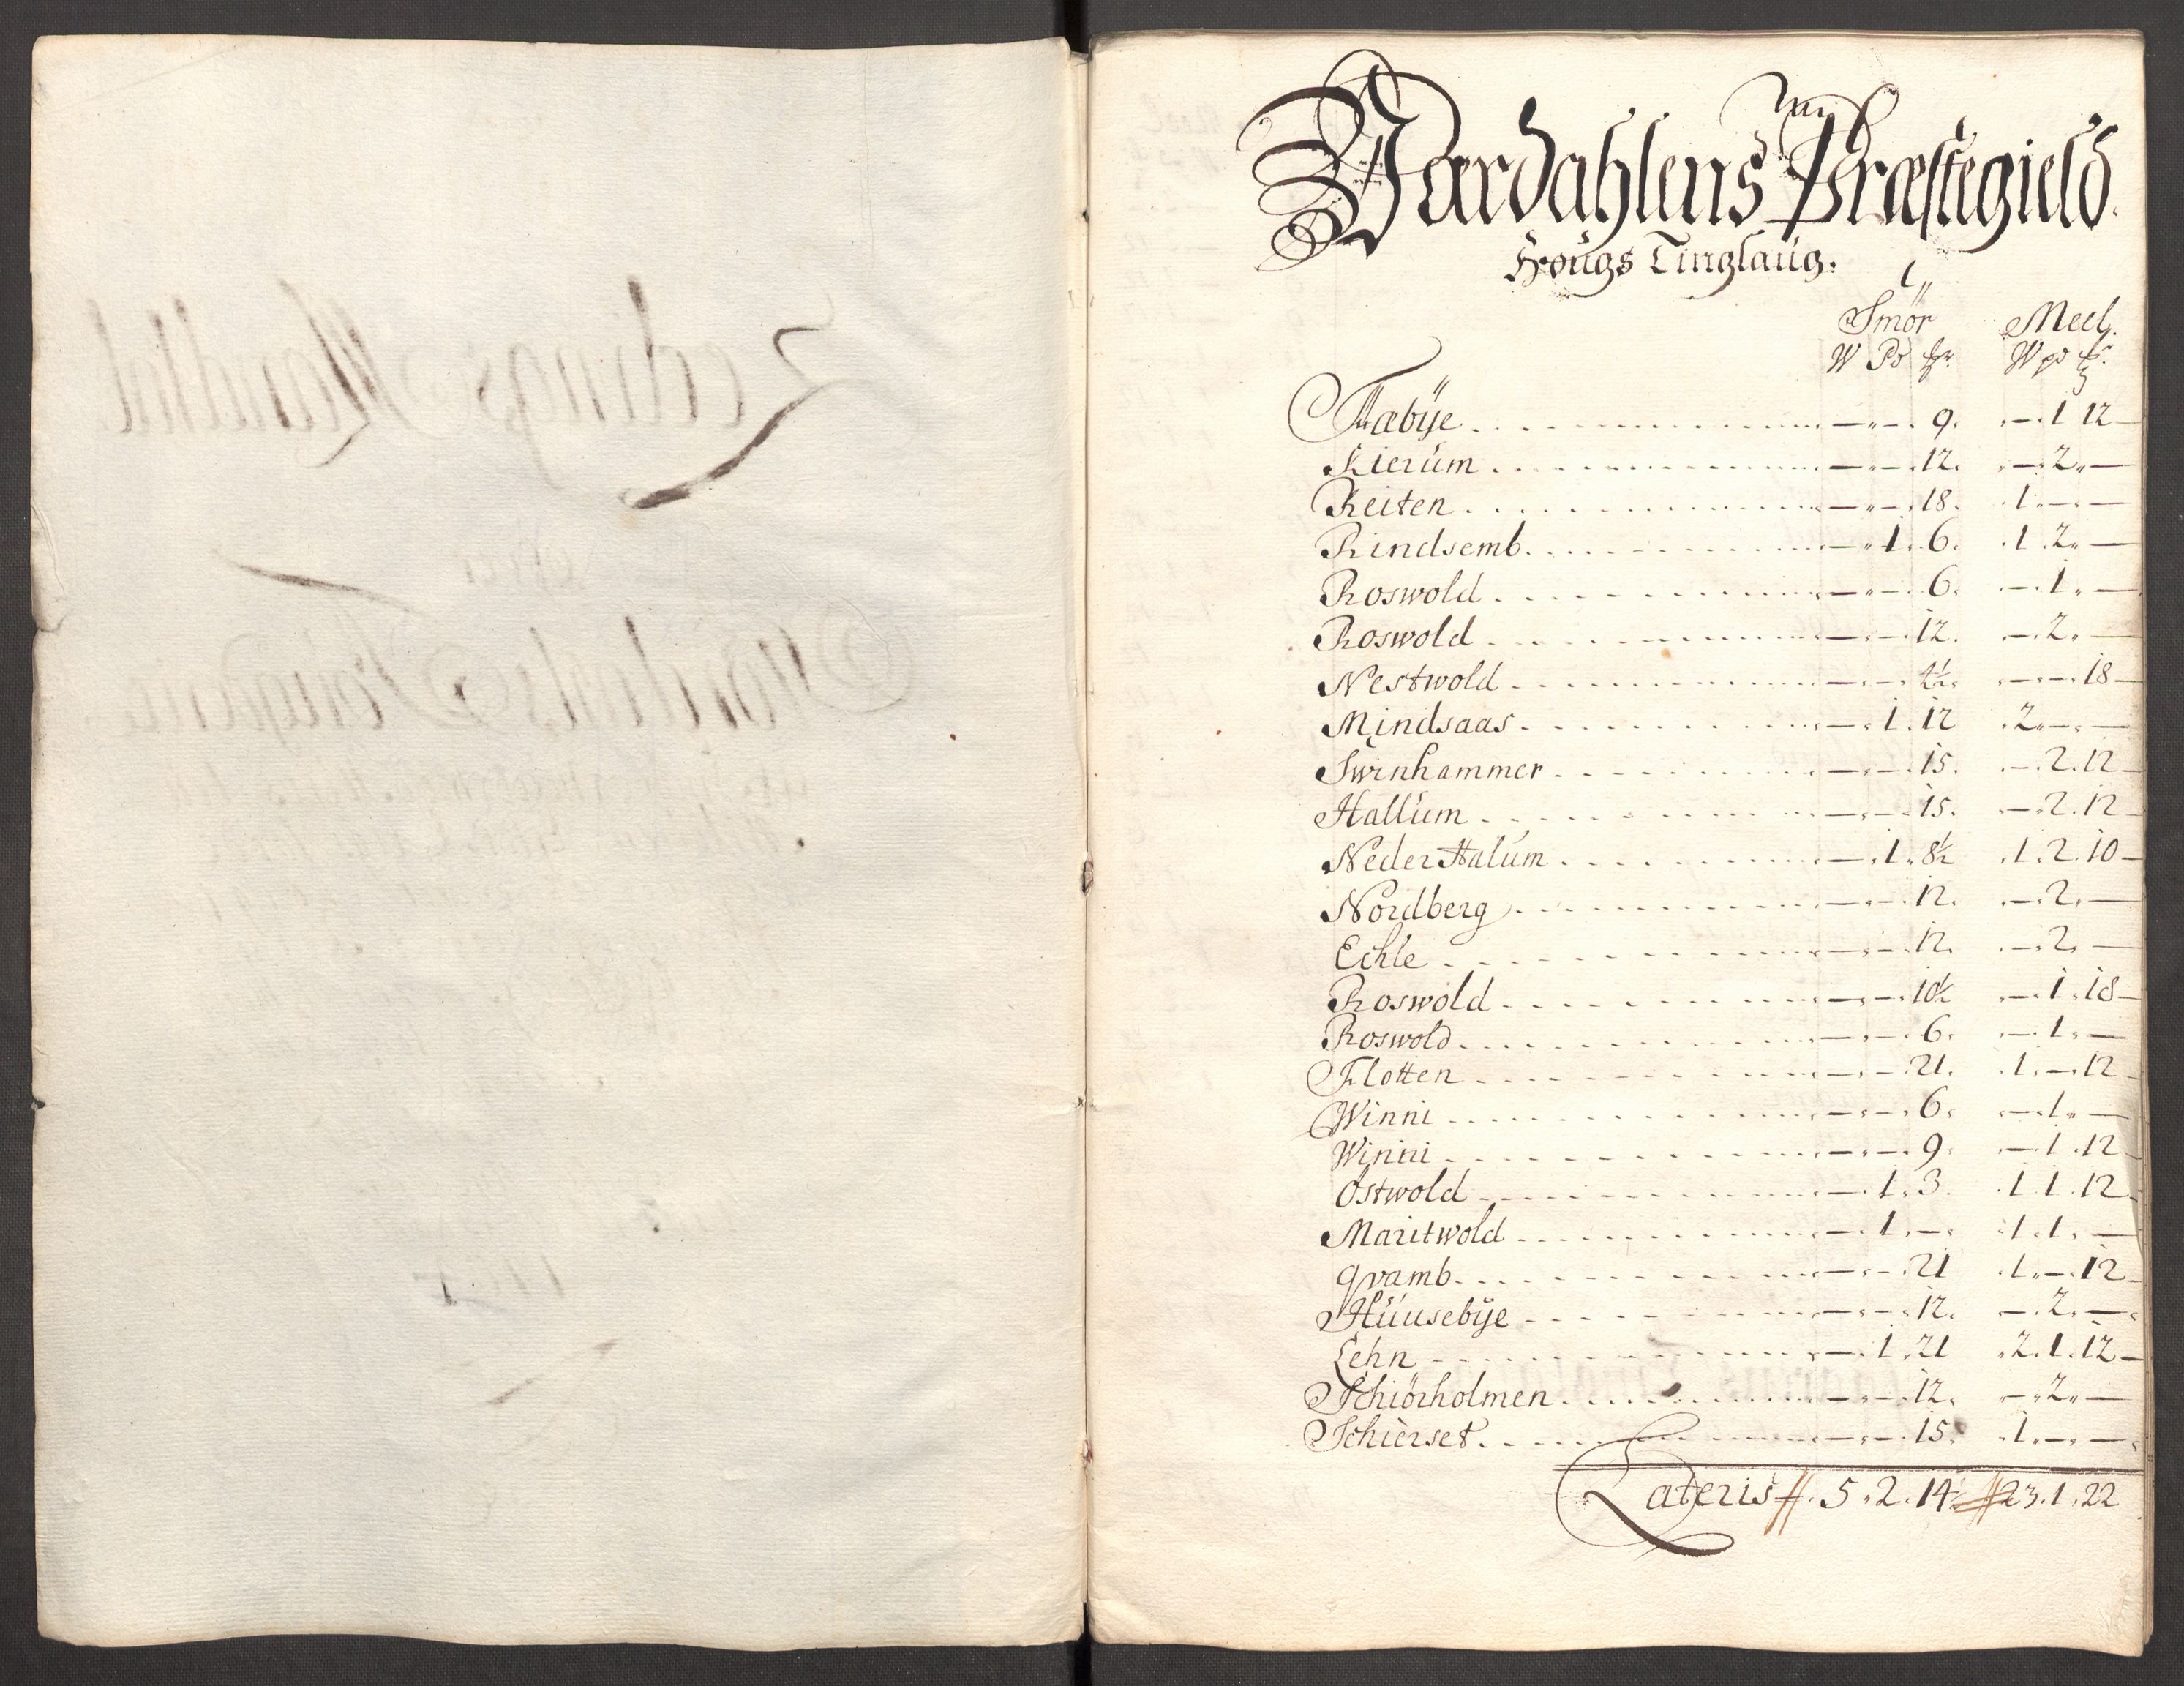 Værdahlens Præstegield.
Hougs Tinglaug.
Smör Meel.
W Pd W pd
Fæbÿe - - 9. - 1 12 -
Kierum - - 12. - 2 -
Reiten - - 18. 1 - -
Rindsemb. - 1. 6. 1. 2. -
Roswold - - 6. - 1. -
Roswold - - 12. - 2. -
Nestwold - - 4½. - - 18 -
Mindsaas - 1. 12 2 - -
Swinhammer - - 15. - 2. 12 -
Hallum - - 15. - 2. 12 -
Neder Halum - 1. 8½ 1. 2. 10 -
Nordberg - - 12. - 2. -
Echle - - 12. - 2. -
Roswold - - 10½ - 1. 18 -
Roswold - - 6. - 1. -
Flotten - - 21. 1. - 12 -
Winni - - 6. - 1. -
Winni - - 9. - 1. 12 -
Östwold - 1. 3. 1. 1. 12 -
Maritwold - 1. - 1. 1. -
Qvamb. - - 21 1. - 12 -
Huusebÿe - - 12. - 2. -
Lehn - 1. 21 2. 1. 12 -
Schiörholmen - - 12. - 2. -
Schierset - - 15. 1. - -
Lateris 5. 2. 14½ 23. 1. 22